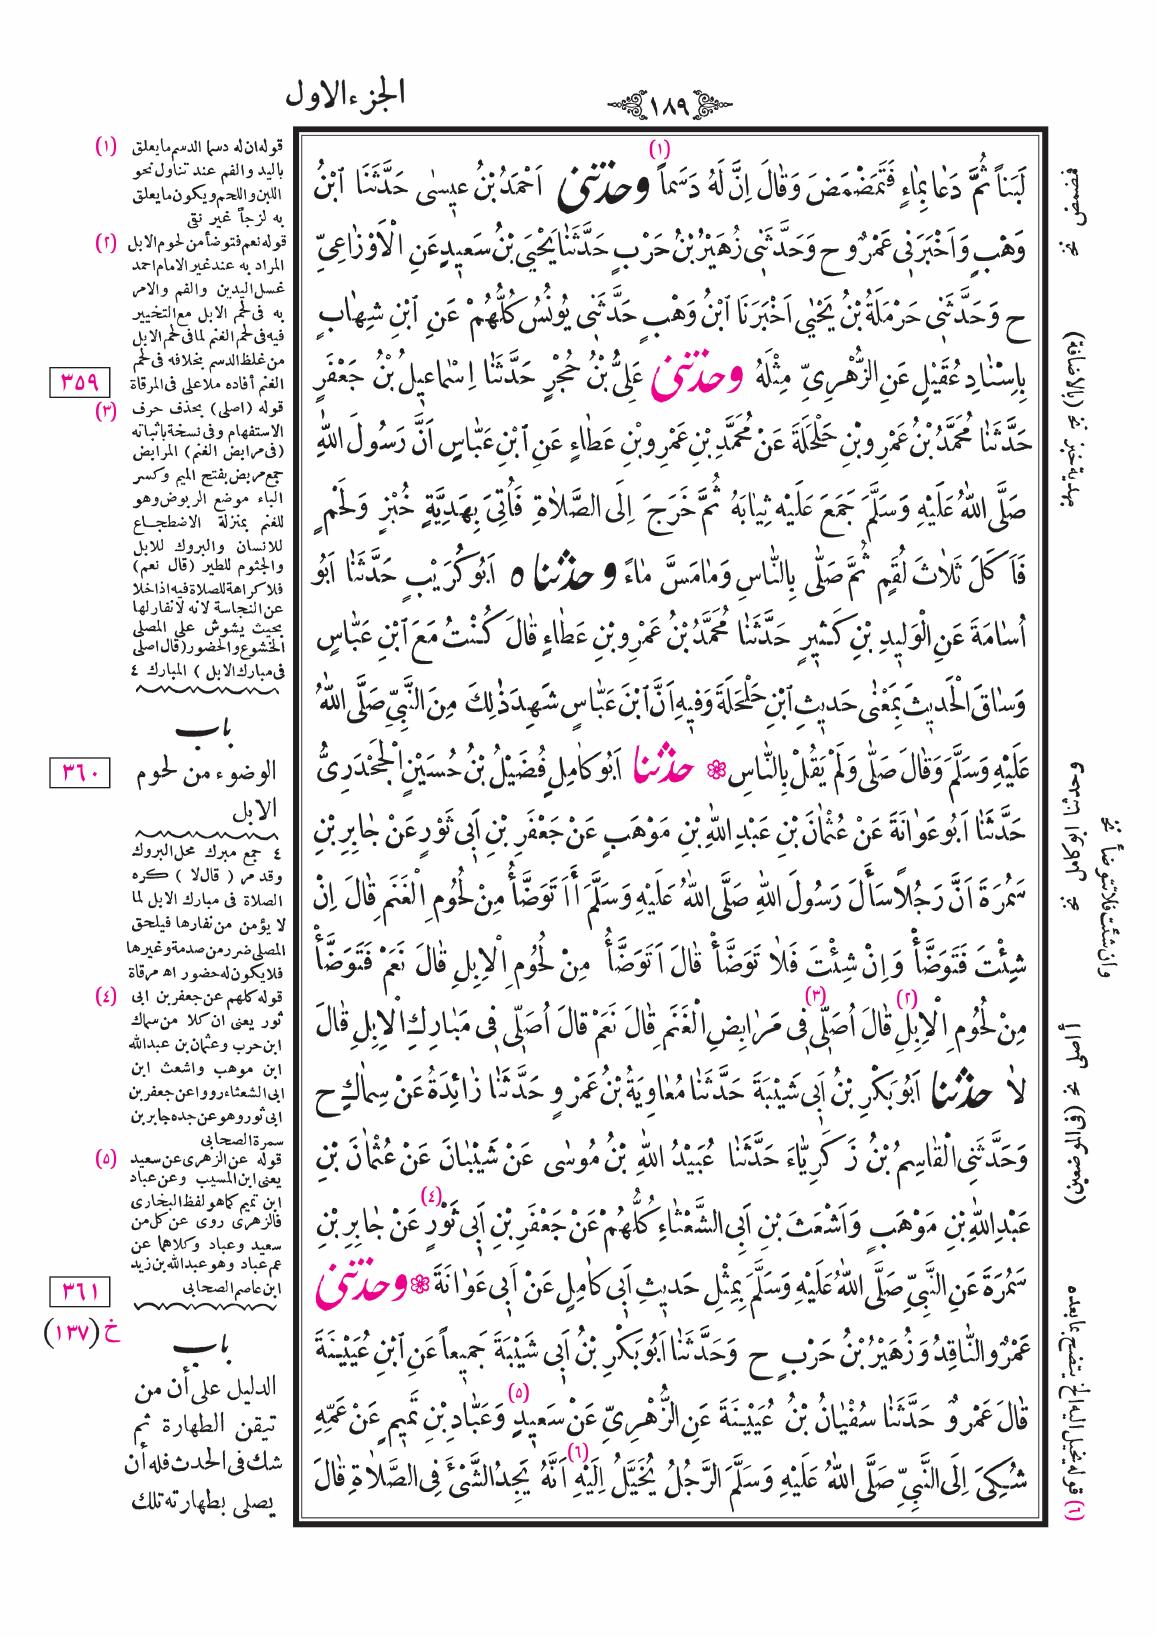 الجزء الاول
١٨٩
(١)
لَبَناً ثُمَّ دَعَا بِمَاءٍ فَتَمَضْمَضَ وَقَالَ اِنَّ لَهُ دَسَماً وحدثنى اَحْمَدُ بْنُ عيسٰى حَدَّثَنَا ابْنُ
وَهْبٍ وَاَخْبَرَنِى عَمْرٌو ح وَحَدَّثَنِى زُهَيْرُ بْنُ حَرْبٍ حَدَّثَنَا يَحْيَى بْنُ سَعيدٍ عَنِ الْاَوْزَاعِىِّ
ح وَحَدَّثَنِى حَرْمَلَةُ بْنُ يَحْيٰى اَخْبَرَنَا ابْنُ وَهْبٍ حَدَّثَنِى يُونُسُ كُلُّهُمْ عَنِ ابْنِ شِهَابٍ
بِاِسْنَادِ عُقَيْلٍ عَنِ الزُّهْرِىِّ مِثْلَهُ وحدثنى عَلِىُّ بْنُ حُجْرٍ حَدَّثَنَا اِسْمَاعيلُ بْنُ جَعْفَرٍ
حَدَّثَنَا مُحَمَّدُ بْنُ عَمْرِو بْنِ حَلْحَلَةَ عَنْ مُحَمَّدِ بْنِ عَمْرِو بْنِ عَطَاءٍ عَنِ ابْنِ عَبَّاسٍ اَنَّ رَسُولَ اللّٰهِ
صَلَّى اللّٰهُ عَلَيْهِ وَسَلَّمَ جَمَعَ عَلَيْهِ ثِيَابَهُ ثُمَّ خَرَجَ اِلَى الصَّلَاةِ فَأُتِىَ بِهَدِيَّةٍ خُبْزٍ وَلَحْمٍ
فَاَكَلَ ثَلَاثَ لُقَمٍ ثُمَّ صَلّٰى بِالنَّاسِ وَمَا مَسَّ مَاءً وحدثنا ه اَبُو كُرَيْبٍ حَدَّثَنَا اَبُو
اُسَامَةَ عَنِ الْوَليدِ بْنِ كَثيرٍ حَدَّثَنَا مُحَمَّدُ بْنُ عَمْرِو بْنِ عَطَاءٍ قَالَ كُنْتُ مَعَ ابْنِ عَبَّاسٍ
وَسَاقَ الْحَديثَ بِمَعْنٰى حَديثِ ابْنِ حَلْحَلَةَ وَفيهِ اَنَّ ابْنَ عَبَّاسٍ شَهِدَ ذٰلِكَ مِنَ النَّبِىِّ صَلَّى اللّٰهُ
عَلَيْهِ وَسَلَّمَ وَقَالَ صَلّٰى وَلَمْ يَقُلْ بِالنَّاسِ ۞ حدثنا اَبُو كَامِلٍ فُضَيْلُ بْنُ حُسَيْنٍ الْجَحْدَرِىُّ
حَدَّثَنَا اَبُو عَوَانَةَ عَنْ عُثْمَانَ بْنِ عَبْدِ اللّٰهِ بْنِ مَوْهَبٍ عَنْ جَعْفَرِ بْنِ اَبِى ثَوْرٍ عَنْ جَابِرِ بْنِ
سَمُرَةَ اَنَّ رَجُلاً سَأَلَ رَسُولَ اللّٰهِ صَلَّى اللّٰهُ عَلَيْهِ وَسَلَّمَ أَاَتَوَضَّأُ مِنْ لُحُومِ الْغَنَمِ قَالَ اِنْ
شِئْتَ فَتَوَضَّأْ وَاِنْ شِئْتَ فَلَا تَوَضَّأْ قَالَ اَتَوَضَّأُ مِنْ لُحُومِ الْاِبِلِ قَالَ نَعَمْ فَتَوَضَّأْ
(٢) (٣)
مِنْ لُحُومِ الْاِبِلِ قَالَ اُصَلّى فِى مَرَابِضِ الْغَنَمِ قَالَ نَعَمْ قَالَ اُصَلّى فِى مَبَارِكِ الْاِبِلِ قَالَ
لَا حدثنا اَبُو بَكْرِ بْنُ اَبِى شَيْبَةَ حَدَّثَنَا مُعَاوِيَةُ بْنُ عَمْرٍو حَدَّثَنَا زَائِدَةُ عَنْ سِمَاكٍ ح
وَحَدَّثَنِى الْقَاسِمُ بْنُ زَكَرِيَّاءَ حَدَّثَنَا عُبَيْدُ اللّٰهِ بْنُ مُوسٰى عَنْ شَيْبَانَ عَنْ عُثْمَانَ بْنِ
(٤)
عَبْدِ اللّٰهِ بْنِ مَوْهَبٍ وَاَشْعَثَ بْنِ اَبِى الشَّعْثَاءِ كُلُّهُمْ عَنْ جَعْفَرِ بْنِ اَبِى ثَوْرٍ عَنْ جَابِرِ بْنِ
سَمُرَةَ عَنِ النَّبِىِّ صَلَّى اللّٰهُ عَلَيْهِ وَسَلَّمَ بِمِثْلِ حَديثِ اَبِى كَامِلٍ عَنْ اَبِى عَوَانَةَ ۞ وحدثنى
عَمْرٌو النَّاقِدُ وَزُهَيْرُ بْنُ حَرْبٍ ح وَحَدَّثَنَا اَبُو بَكْرِ بْنُ اَبِى شَيْبَةَ جَميعاً عَنِ ابْنِ عُيَيْنَةَ
(٥)
قَالَ عَمْرٌو حَدَّثَنَا سُفْيَانُ بْنُ عُيَيْنَةَ عَنِ الزُّهْرِىِّ عَنْ سَعيدٍ وَعَبَّادِ بْنِ تَميمٍ عَنْ عَمِّهِ
(٦)
شُكِىَ اِلَى النَّبِىِّ صَلَّى اللّٰهُ عَلَيْهِ وَسَلَّمَ الرَّجُلُ يُخَيَّلُ اِلَيْهِ اَنَّهُ يَجِدُ الشَّىْءَ فِى الصَّلَاةِ قَالَ
(١) قوله ان له دسما الدسم ما يعلق
باليد والفم عند تناول نحو
اللبن واللحم ويكون ما يعلق
به لزجاً غير نقى
(٢) قوله نعم فتوضأ من لحوم الابل
المراد به عند غير الامام احمد
غسل اليدين والفم والامر
به فى لحم الابل مع التخيير
فيه فى لحم الغنم لما فى لحم الابل
من غلظ الدسم بخلافه فى لحم
٣٥٩
الغنم أفاده ملا على فى المرقاة
(٣) قوله (اصلى) بحذف حرف
الاستفهام وفى نسخة باثباته
(فى مرابض الغنم) المرابض
جمع مربض بفتح الميم وكسر
الباء موضع الربوض وهو
للغنم بمنزلة الاضطجاع
للانسان والبروك للابل
والجثوم للطير (قال نعم)
فلا كراهة للصلاة فيه اذا خلا
عن النجاسة لانه لا نفار لها
بحيث يشوش على المصلى
الخشوع والحضور (قال اصلى
فى مبارك الابل) المبارك ٤
باب
٣٦٠
الوضوء من لحوم
الابل
٤ جمع مبرك محل البروك
وقد مر (قال لا) كره
الصلاة فى مبارك الابل لما
لا يؤمن من نفارها فيلحق
المصلى ضرر من صدمة وغيرها
فلا يكون له حضور اه مرقاة
(٤) قوله كلهم عن جعفر بن ابى
ثور يعنى ان كلا من سماك
ابن حرب وعثمان بن عبدالله
ابن موهب واشعث ابن
ابى الشعثاء رووا عن جعفر بن
ابى ثور وهو عن جده جابر بن
سمرة الصحابى
(٥) قوله عن الزهرى عن سعيد
يعنى ابن المسيب وعن عباد
ابن تميم كما هو لفظ البخارى
فالزهرى روى عن كل من
سعيد وعباد وكلاهما عن
عم عباد وهو عبدالله بن زيد
ابن عاصم الصحابى
٣٦١
خ (١٣٧)
باب
الدليل على أن من
تيقن الطهارة ثم
شك فى الحدث فله أن
يصلى بطهارته تلك
فمضمض نخ
بهدية خبز نخ (بالاضافة)
وحدثنا نخ
وان شئت فلا تتوضأ نخ
أ اصلى نخ (فى الموضعين)
(٦) قوله يخيل اليه الخ يتضح بما بعده